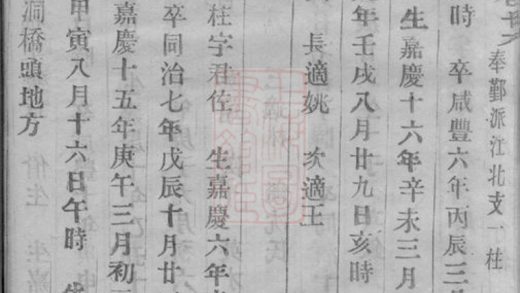 奉鄞派江北支一柱
時 卒咸豐六年丙辰三
生嘉慶十六年辛未三月
年壬戌八月廿九日亥時
長適姚 次適王
柱字君佐 生嘉慶六年
卒同治七年戊辰十月廿
嘉慶十五年庚午三月初
甲寅八月十六日午時
洞橋頭地方